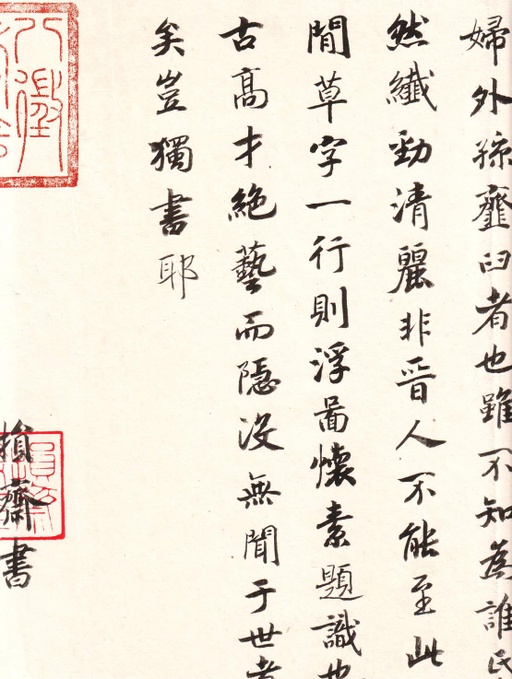 婦外孫齏臼者也雖不知為誰氏
然纖勁清麗非晉人不能至此
間草字一行則浮啚懷素題識也
古高才絕藝而隱沒無聞于世者
矣豈獨書耶
損齋書
損齋